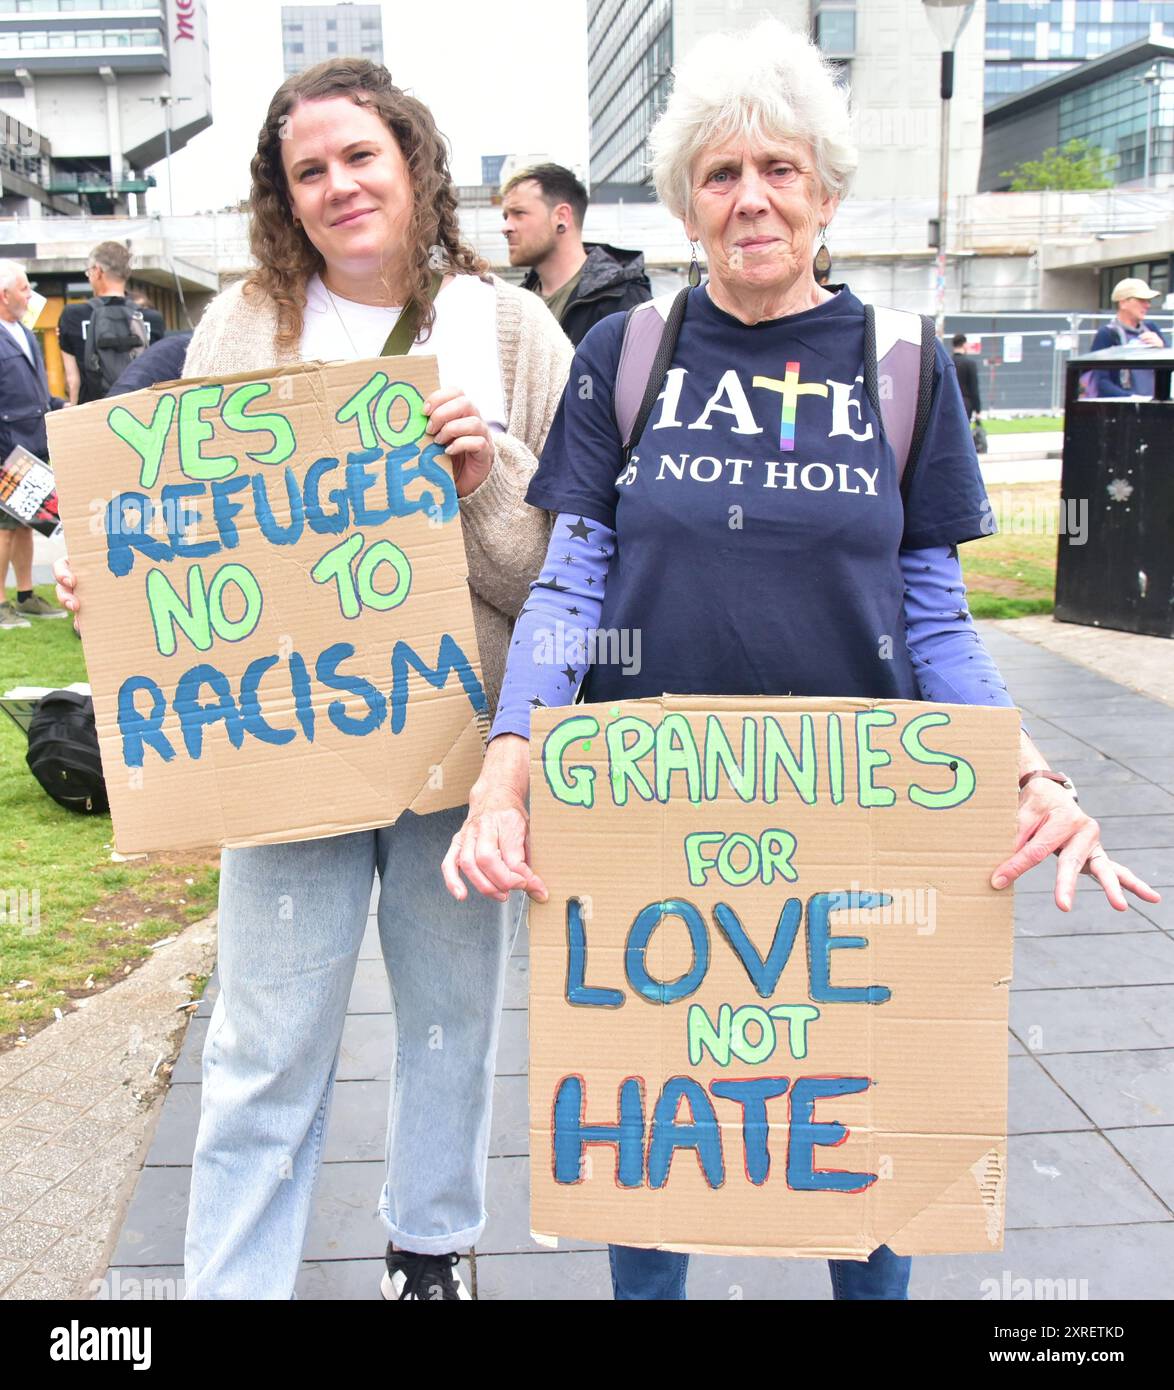 me
YES TO
REFUGEES
NO TO
RACISM
HATE
IS NOT HOLY
GRANNIES
FOR
LOVE
NOT
HATE
alamy
Image ID: 2XRETKD
www.alamy.com